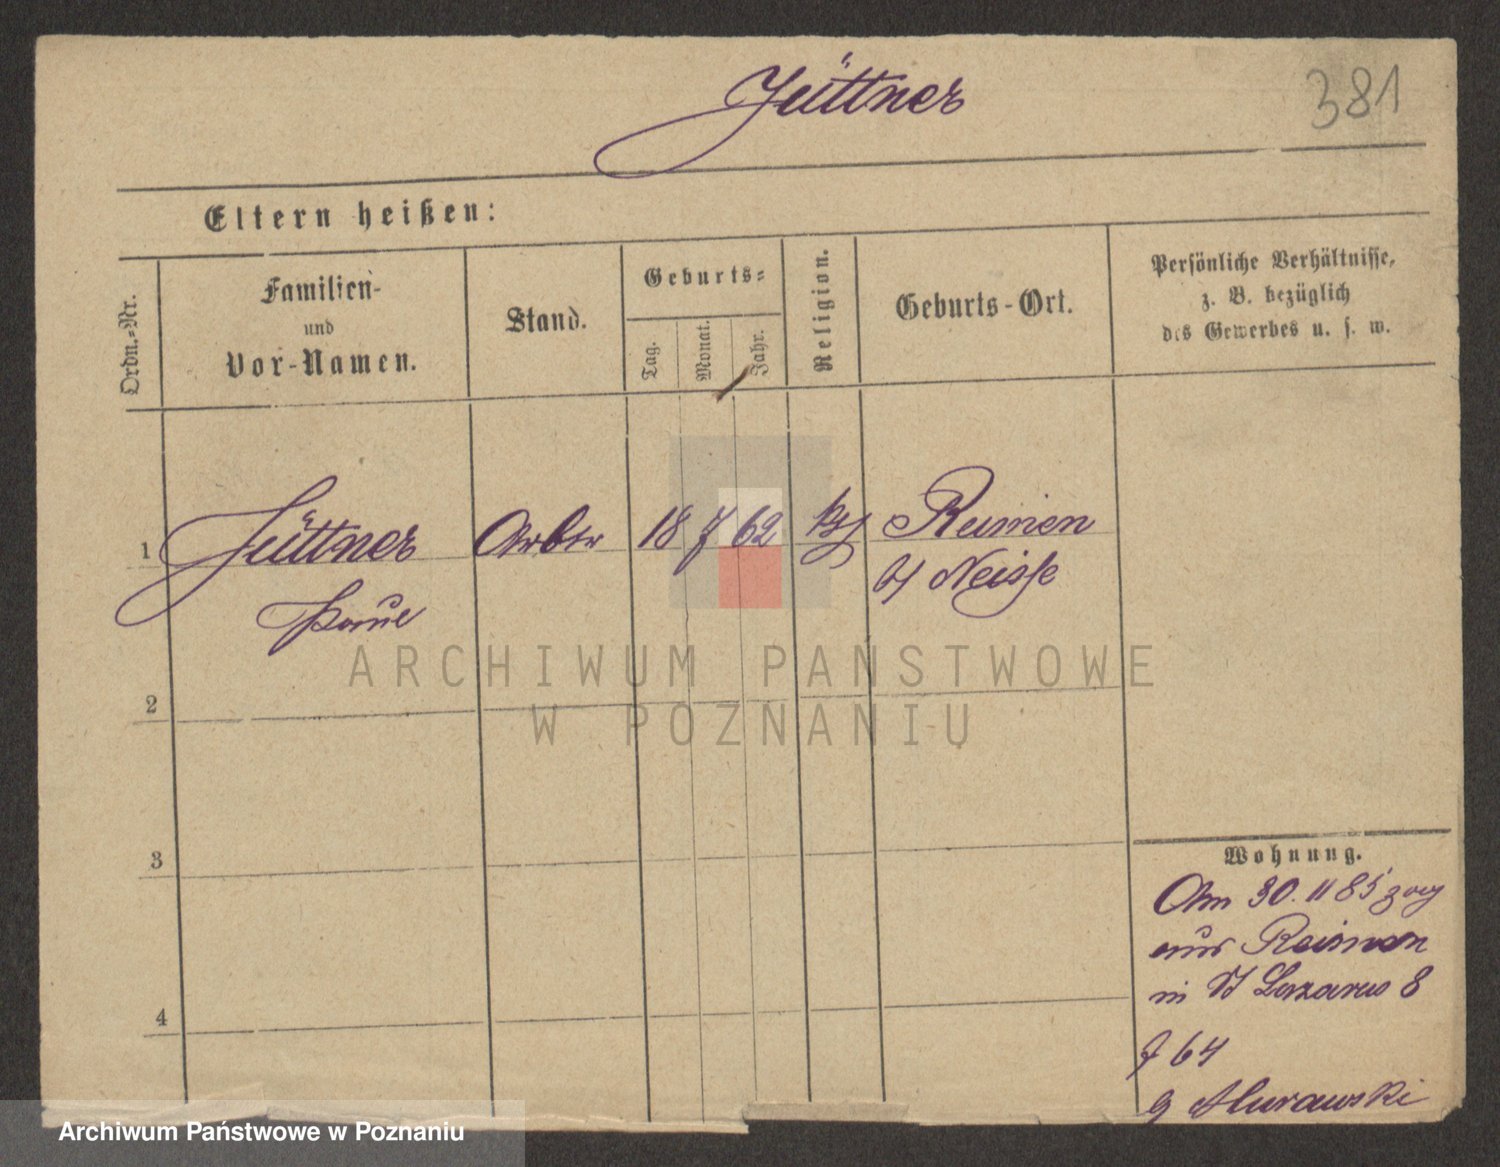 Jüttner
381
Eltern heißen:
Ordn.-Nr.
Familien-
und
Vor-Namen.
Stand.
Geburts-
Tag.
Monat.
Jahr.
Religion.
Geburts-Ort.
Persönliche Verhältnisse,
z. B. bezüglich
des Gewerbes u. s. w.
1
Jüttner
Paul
Arbtr
18 7 62
Reimen
b/ Neisse
2
3
4
Wohnung.
Am 30. 11 85 zog
aus Reimen
in St Lazarus 8
f 64
Murawski
ARCHIWUM PAŃSTWOWE
W POZNANIU
Archiwum Państwowe w Poznaniu